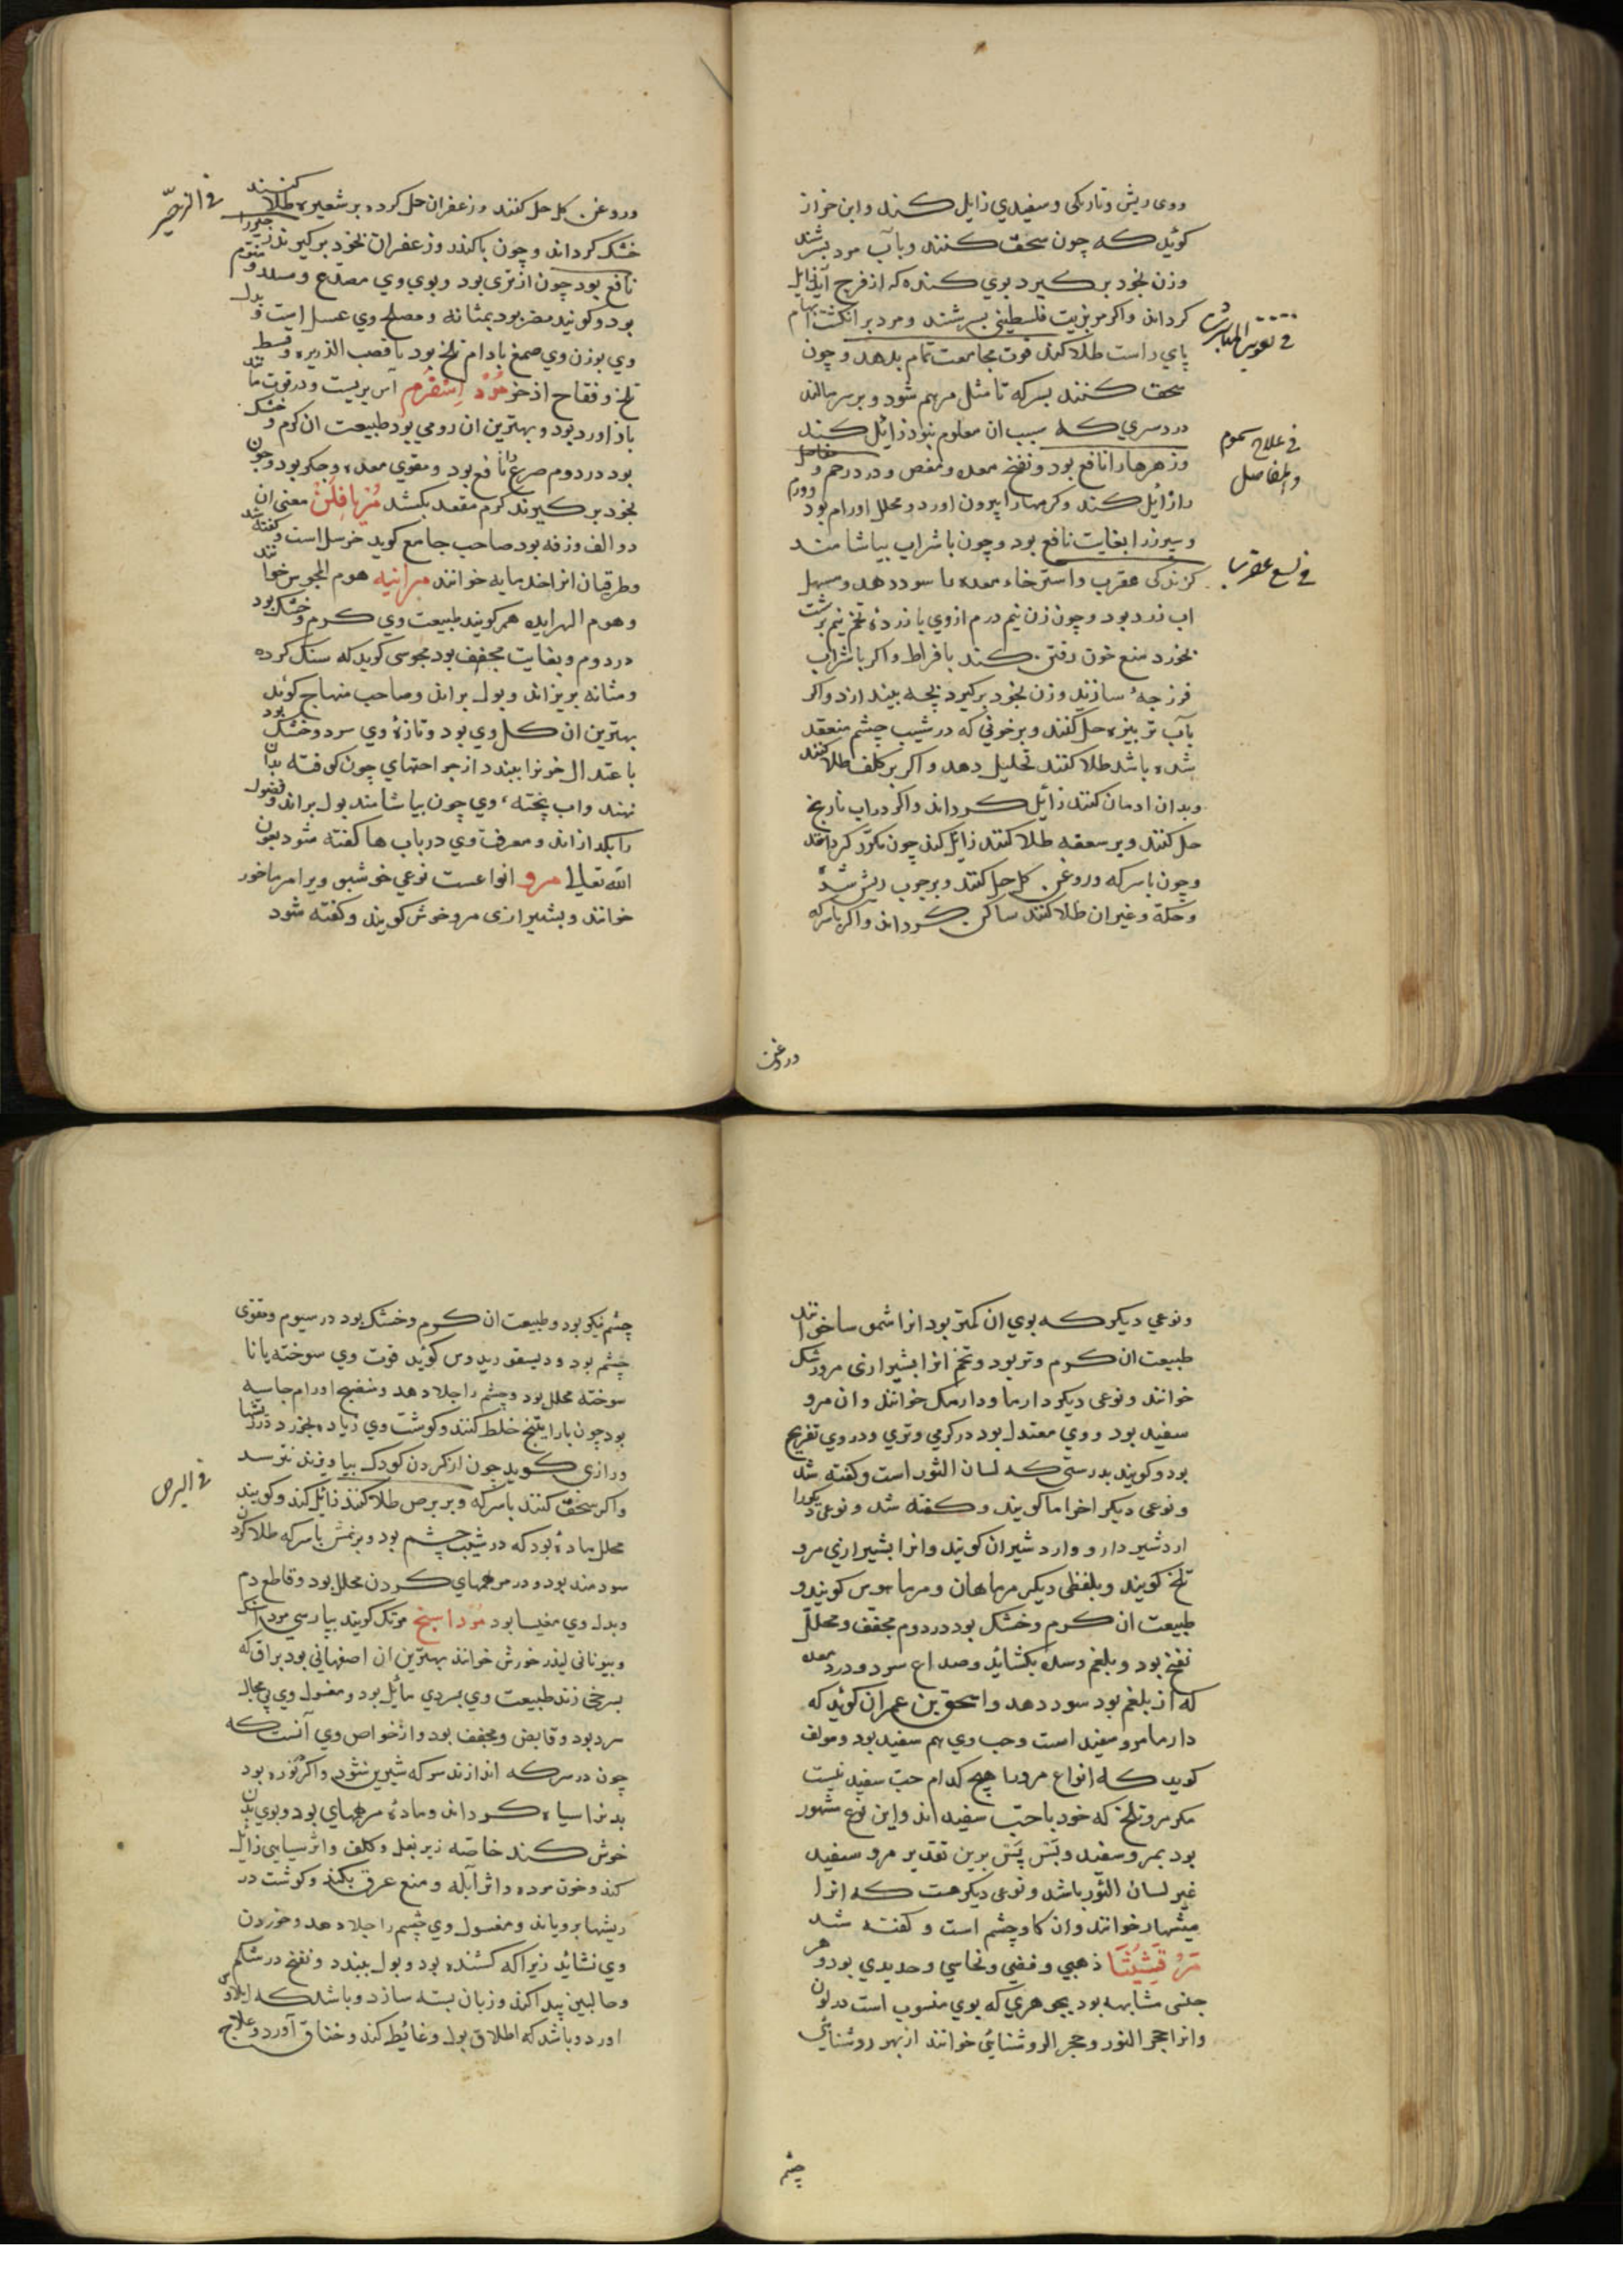 ووی ریش وتاریکی وسفیدي زایل کند وابن خراز
کوید که چون سحق کنند وبآب مورد بسرشند
وزن بخود برکیرد بوي کنده که از فرج آید زایل
کرداند واکر مر بزیت فلسطینی بسرشند ومرد بر انکشت ابهام
پاي راست طلا کند قوت مجامعت تمام بدهد وچون
سحق کنند بسرکه تا مثل مرهم شود و بر سر مالند
دردسري که سبب ان معلوم نبود زائل کند
وزهرهارا نافع بود ونفخ معده ومغص ودرد رحم و مفاصل
را زائل کند وکرمهارا بیرون اورد ومحلل اورام بود
وسپرز را بغایت نافع بود وچون با شراب بیاشامند
کزندکی عقرب واسترخاء معده را سود دهد ومسهل
اب زرد بود وچون زن نیم درم ازوي با زردهٔ تخم نیم برشت
بخورد منع خون رفتن کند بافراط واکر با شراب
فرزجهٔ سازند وزن بخود برکیرد بچه بیندازد واکر
بآب حل کنند وبر خونی که در شیب چشم منعقد
شده باشد طلا کنند تحلیل دهد واکر بر کلف طلا کنند
وبدان ادمان کنند زائل کرداند واکر در اب نارنج
حل کنند وبر سعفه طلا کنند زائل کند چون مکرّر کردانند
وچون با سرکه وروغن کل حل کنند وبر جرب ریش شده
وحکة وغیران طلا کنند ساکن کرداند واکر با سرکه
في تقویة المباشرت
في علاج سموم
والمفاصل
في لسع عقرب
وروغن
وروغن کل حل کنند وزعفران حل کرده بر شعیره طلا کنند
خشک کرداند وچون با کندر وزعفران بخود برکیرند زحیررا
نافع بود چون از تری بود وبوي وي مصدّع ومسدد ومنوم
بود وکویند مضر بود بمثانه ومصلح وي عسل است و بدل
وي بوزن وي صمغ بادام تلخ بود با قصب الذریره وقسط
تلخ وفقاح اذخر مُرْد اِسْفَرم آس بریست ودر قوت مانند
باذاورد بود وبهترین ان رومی بود طبیعت ان کرم و خشک
بود در دوم صرع را نافع بود ومقوي معده وجکر بود وچون
بخود برکیرند کرم مقعد بکشد مُرْیافِلَنْ معنی ان
ذو الف ورقه بود صاحب جامع کوید خرسل است وکفته شد
وطرقیان انرا خدمایه خوانند مرانیه هوم المجوس خوانند
وهوم الهرابده هم کویند طبیعت وي کرم وخشک بود
در دوم وبغایت مجفف بود مجوسی کوید که سنک کرده
ومثانه بریزاند وبول براند وصاحب منهاج کوید
بهترین ان کل وي بود وتازهٔ وي سرد وخشک بود
باعتدال خونرا ببندد از جراحتهاي چون کوفته بدان
نهند واب پخته وي چون بیاشامند بول براند وفضول
را بکدازاند ومعرفت وي در باب ها کفته شود بعون
الله تعالی مرو انواعست نوعي خوشبو ویرا مرماخور
خوانند وبشیرازی مرو خوش کویند وکفته شود
في الزحیر
ونوعي دیکر که بوي ان کمتر بود انرا شموسا خوانند
طبیعت ان کرم وتر بود وتخم انرا بشیرازی مرو رشک
خوانند ونوعی دیکر دارما ودارمک خوانند وان مرو
سفید بود و وي معتدل بود در کرمي وتري ودر وي تفریح
بود وکویند بدرستی که لسان الثور است وکفته شد
ونوعی دیکر اخراما کویند وکفته شد ونوعی دیکررا
اردشیر دارو وارد شیران کویند وانرا بشیرازي مرو
تلخ کویند وبلفظی دیکر مرماهان ومرماهوس کویند و
طبیعت ان کرم وخشک بود در دوم مجفّف ومحلّل
نفخ بود وبلغم وسده بکشاید وصداع سرد ودرد معده
که از بلغم بود سود دهد واسحق بن عمران کوید که
دارما مرو سفید است وحب وي هم سفید بود ومولف
کوید که انواع مرورا هیچ کدام حب سفید نیست
مکر مرو تلخ که خود با حبّ سفید اند واین نوع مشهور
بود بمرو سفید وبَسْ پَسْ برین تقدیر مرو سفید
غیر لسان الثور باشد ونوعی دیکر هست که انرا
میشبهار خوانند وان کاوچشم است وکفته شد
مَرْقَشِیْثَا ذهبی وفضی ونحاسي وحدیدي بود وهر
جنسی مشابهه بود بجوهري که بوي منسوب است در لون
وانرا حجر النور وحجر الروشنائی خوانند از بهر روشنائی
چشم
چشم نیکو بود وطبیعت ان کرم وخشک بود در سیوم ومقوی
چشم بود ودیسقوریدوس کوید قوت وي سوخته یا نا
سوخته محلل بود وچشم را جلا دهد ومنضج اورام جاسیه
بود چون با راتینج خلط کنند وکوشت وي زیاد بخورد در ریشها
ورازی کوید چون از کردن کودک بیاویزند نترسد
واکر سحق کنند با سرکه وبر برص طلا کنند زائل کند وکویند
محلل مادهٔ بود که در شیب چشم بود وبر نمش با سرکه طلا کردن
سودمند بود ودر مرهمهاي کردن محلل بود وقاطع دم
وبدل وي مغنیسا بود مُرْداسَنج مرتک کویند بپارسي مرداسنک
وبیونانی لیذرخورش خوانند بهترین ان اصفهانی بود براق که
بسرخی زند طبیعت وي بسردي مائل بود ومغسول وي في الجمله
سرد بود وقابض ومجفف بود واز خواص وي آنست که
چون در سرکه اندازند سرکه شیرین شود واکر نوره بود
بدنرا سیاه کرداند ومادهٔ مرهمهاي بود وبوي بدن
خوش کند خاصّه زیر بغل وکلف واثر سیاهی زائل
کند وخون مرده واثر آبله ومنع عرق بکند وکوشت در
ریشها برویاند ومغسول وي چشم را جلا دهد وخوردن
وي نشاید زیرا که کشنده بود وبول ببندد ونفخ در شکم
وحالبین پیدا کند وزبان بسته سازد وباشد که ایلاوس
اورد وباشد که اطلاق بول وغائط کند وخناق آورد وعلاج
في البرص